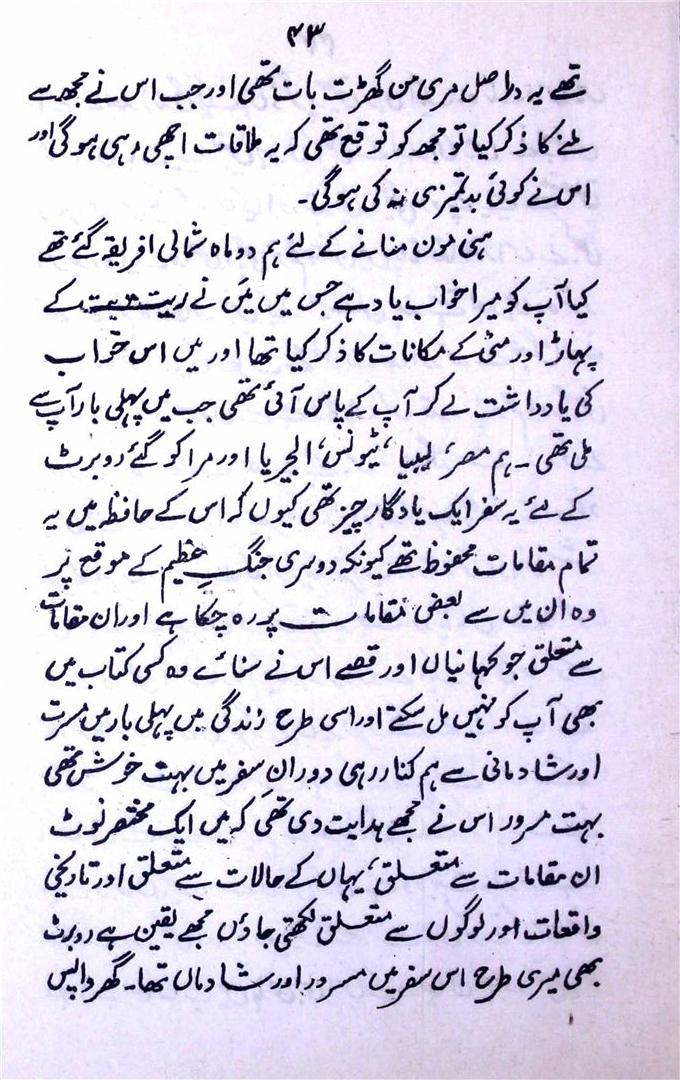 ۴۳
تھے یہ دراصل مری من گھڑت بات تھی اور جب اس نے مجھ سے
ملنے کا ذکر کیا تو مجھ کو توقع تھی کہ یہ ملاقات اچھی رہی ہوگی اور
اس نے کوئی بدتمیزی نہ کی ہوگی۔
ہنی مون منانے کے لئے ہم دو ماہ شمالی افریقہ گئے تھے
کیا آپ کو میرا خواب یاد ہے جس میں میں نے ریت کے
پہاڑ اور مٹی کے مکانات کا ذکر کیا تھا اور میں اس خواب
کی یادداشت لے کر آپ کے پاس آئی تھی جب میں پہلی بار آپ سے
ملی تھی۔ ہم مصر، لیبیا، ٹیونس، الجیریا اور مراکو گئے روبرٹ
کے لئے یہ سفر ایک یادگار چیز تھی کیوں کہ اس کے حافظہ میں یہ
تمام مقامات محفوظ تھے کیونکہ دوسری جنگِ عظیم کے موقع پر
وہ ان میں سے بعض مقامات پر رہ چکا ہے اور ان مقامات
سے متعلق جو کہانیاں اور قصے اس نے سنائے وہ کسی کتاب میں
بھی آپ کو نہیں مل سکتے اور اسی طرح زندگی میں پہلی بار میں مسرت
اور شادمانی سے ہم کنار رہی دورانِ سفر میں بہت خوش تھی
بہت مسرور اس نے مجھے ہدایت دی تھی کہ میں ایک مختصر نوٹ
ان مقامات سے متعلق، یہاں کے حالات سے متعلق اور تاریخی
واقعات اور لوگوں سے متعلق لکھتی جاؤں مجھے یقین ہے روبرٹ
بھی میری طرح اس سفر میں مسرور اور شادماں تھا۔ گھر واپس